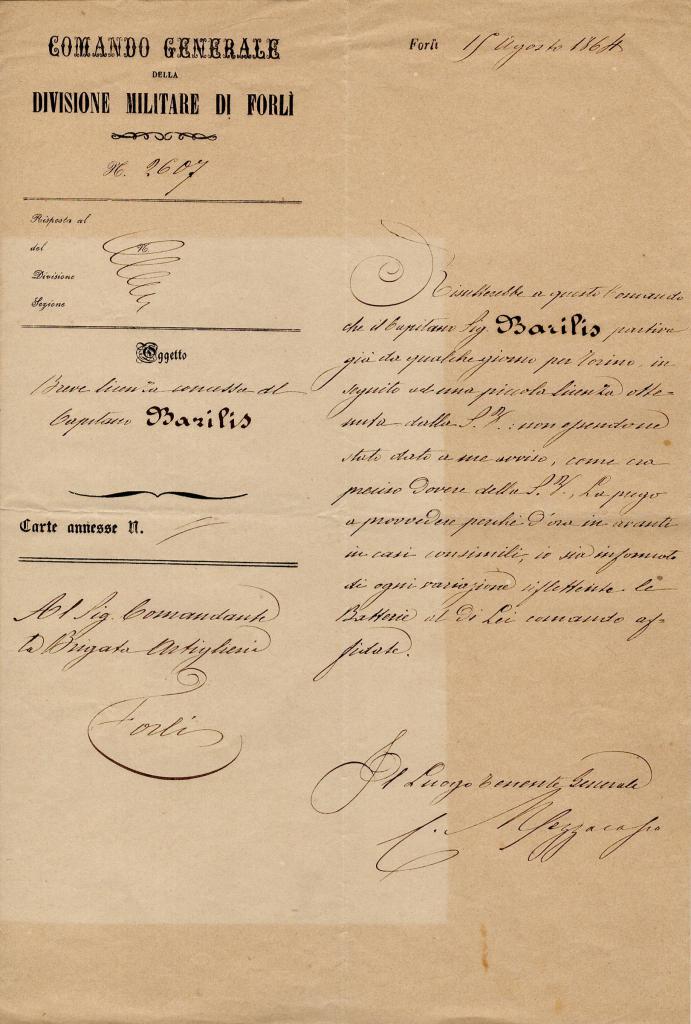 COMANDO GENERALE
DELLA
DIVISIONE MILITARE DI FORLÌ
N. 2607
Risposta al
del N.
Divisione
Sezione
Oggetto
Breve licenza concessa al
Capitano Barilis
Carte annesse N. //
Al Sig. Comandante
la Brigata Artiglieria
Forlì
Forlì 15 Agosto 1864
Risulterebbe a questo Comando
che il Capitano Sig. Barilis partiva
già da qualche giorno per Torino, in
seguito ad una piccola licenza otte-
nuta dalla S.V.: non essendone
stato dato a me avviso, come era
preciso dovere della S.V., La prego
a provvedere perché d'ora in avanti
in casi consimili, io sia informato
di ogni variazione riflettente le
Batterie al di Lei comando af-
fidate.
Il Luogo Tenente Generale
C. Mezzacapo